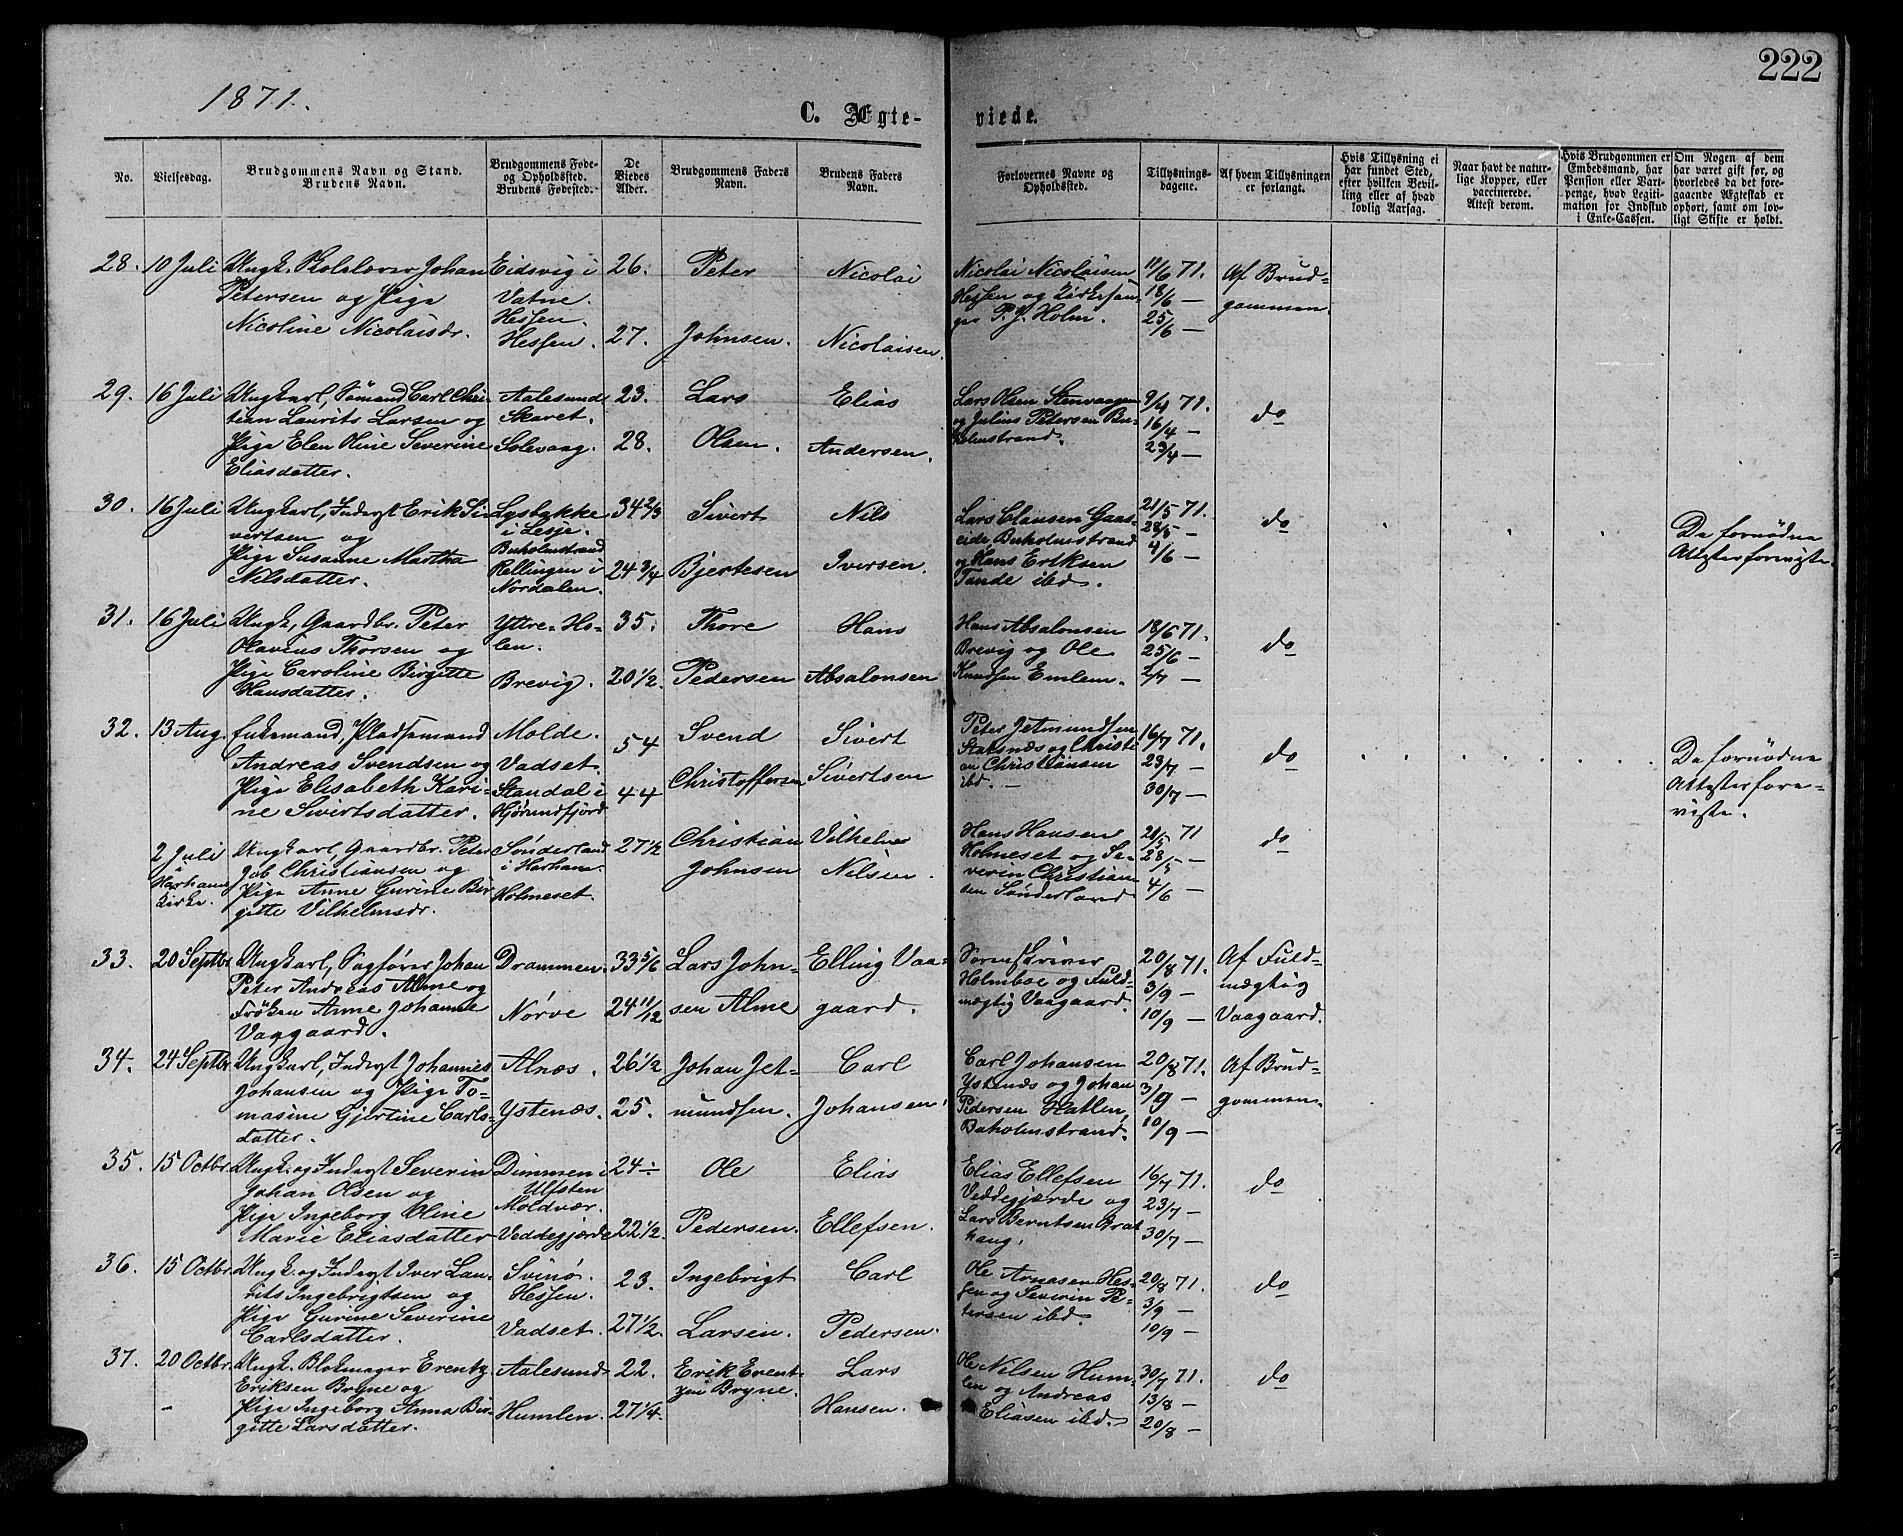 222
1871.
C. Ægteviede.
No.
Vielsesdag.
Brudgommens Navn og Stand.
Brudens Navn.
Brudgommens Føde-
og Opholdssted.
Brudens Fødested.
De
Viedes
Alder.
Brudgommens Faders
Navn.
Brudens Faders
Navn.
Forlovernes Navne og
Opholdssted.
Tillysnings-
dagene.
Af hvem Tillysningen
er forlangt.
Hvis Tillysning ei
har fundet Sted,
efter hvilken Bevil-
ling eller af hvad
lovlig Aarsag.
Naar havt de natur-
lige Kopper, eller
vaccinerede.
Attest derom.
Hvis Brudgommen er
Embedsmand, har
Pension eller Vart-
penge, hvad Legiti-
mation for Indskud
i Enke-Cassen.
Om Nogen af dem
har været gift før, og
hvorledes da det fore-
gaaende Ægteskab er
ophørt, samt om lov-
ligt Skifte er holdt.
28. 10 Juli
Ungk. Johan
Petersen og Pige
Nicoline Nicolaisdr.
Eidsvig i
Vatne.
Hessen.
Hessen.
26.
27.
Peter
Johnsen.
Nicolai
Nicolaisen.
Nicolai Nicolaisen
Hessen og Kirkesan-
ger P. J. Holm.
11/6 71.
18/6 —
25/6 —
Af Brud-
gommen.
29. 16 Juli
Ungkarl, Sømand Carl Chris-
tian Laurits Larsen og
Pige Elen Oline Severine
Eliasdatter.
Aalesund
Skaret.
Solevaag.
23.
28.
Lars
Olsen.
Elias
Andersen.
Lars Olsen Stenvaagen
og Julius Petersen Bu-
holmstrand.
9/4 71.
16/4 —
23/4 —
do
30. 16 Juli
Ungkarl, Inderst Erik Si-
vertsen og
Pige Susanne Martha
Nilsdatter.
i Lesje.
Buholmstrand
Rellingen i
Nordalen.
34 2/3
24 3/4
Sivert
Bjertesen
Nils
Iversen.
Lars Clausen Gaas-
eide Buholmstrand
og Hans Eriksen
Tande ibd.
21/5 71.
28/5 —
4/6 —
do
De fornødne
Attester foreviste.
31. 16 Juli
Ungk, Gaardbr. Peter
Olavius Thorsen og
Pige Caroline Birgitte
Hansdatter.
Yttre-Ho-
len.
Brevig.
35.
20 1/2.
Thore
Pedersen
Hans
Absalonsen
Hans Absalonsen
Brevig og Ole
Knudsen Emlem.
18/6 71.
25/6 —
2/7 —
do
32. 13 Aug.
Enkemand, Pladsemand
Andreas Svendsen og
Pige Elisabeth Kari-
ne Sivertsdatter.
Molde.
Vadset.
Standal i
Hjørundfjord
54
44
Svend
Christoffersen
Sivert
Sivertsen
Peter Jetmundsen
og Christi-
an Christiansen
ibd. —
16/7 71.
23/7 —
30/7 —
do
De fornødne
Attester fore-
viste.
2 Juli
i Harhams
Kirke.
Ungkarl, Gaardbr. Peter
Job Christiansen og
Pige Anne Gurine Bir-
gitte Vilhelmsdr.
Sønderland
i Harham.
Holmeset.
27 1/2
Christian
Johnsen
Vilhelm
Nilsen.
Hans Hansen
Holmeset og Se-
verin Christian-
sen Sønderland
21/5 71
28/5 —
4/6 —
do
33. 20 Septbr.
Ungkarl, Sagfører Johan
Peter Andreas Alme og
Frøken Anne Johanne
Vaagaard.
Drammen.
Nørve
33 5/6
24 11/12
Lars John-
sen Alme
Elling Vaa-
gaard.
Sorenskriver
Holmboe og Fuld-
mægtig Vaagaard.
20/8 71.
3/9 —
10/9 —
Af Fuld-
mægtig
Vaagaard.
34. 24 Septbr.
Ungkarl, Inderst Johannes
Johansen og Pige To-
masine Gjertine Carls-
datter.
Alnæs.
Ystenæs.
26 1/2
25.
Johan Jet-
mundsen.
Carl
Johansen.
Carl Johansen
Ystenæs og Johan
Pedersen Hatlen,
Buholmstrand.
20/8 71.
3/9 —
10/9 —
Af Brud-
gommen.
35. 15 Octbr.
Ungk. og Inderst Severin
Johan Olsen og
Pige Ingeborg Oline
Marie Eliasdatter
Dimmen i
Ulfsten
Moldvær.
Veddegjærde
24 ÷
22 1/2.
Ole
Pedersen.
Elias
Ellefsen.
Elias Ellefsen
Veddegjærde og
Lars Berntsen Brat-
haug.
16/7 71.
23/7 —
30/7 —
do
36. 15 Octbr.
Ungk. og Inderst Iver Lau-
rits Ingebrigtsen og
Pige Gurine Severine
Carlsdatter.
Svinø.
Hessen.
Vadset.
23.
27 1/2.
Ingebrigt
Larsen.
Carl
Pedersen.
Ole Arnesen Hes-
sen og Severin Pe-
tersen ibd.
20/8 71.
3/9 —
10/9 —
do
37. 20 Octbr.
Ungk. Blokmager Erentz
Eriksen Bryne og
Pige Ingeborg Anna Bir-
gitte Larsdatter.
Aalesund
Humlen.
22.
27 1/4.
Erik Erent-
zen Bryne.
Lars
Hansen.
Ole Nilsen Hum-
len og Andreas
Eliasen ibd.
30/7 71.
13/8 —
20/8 —
do